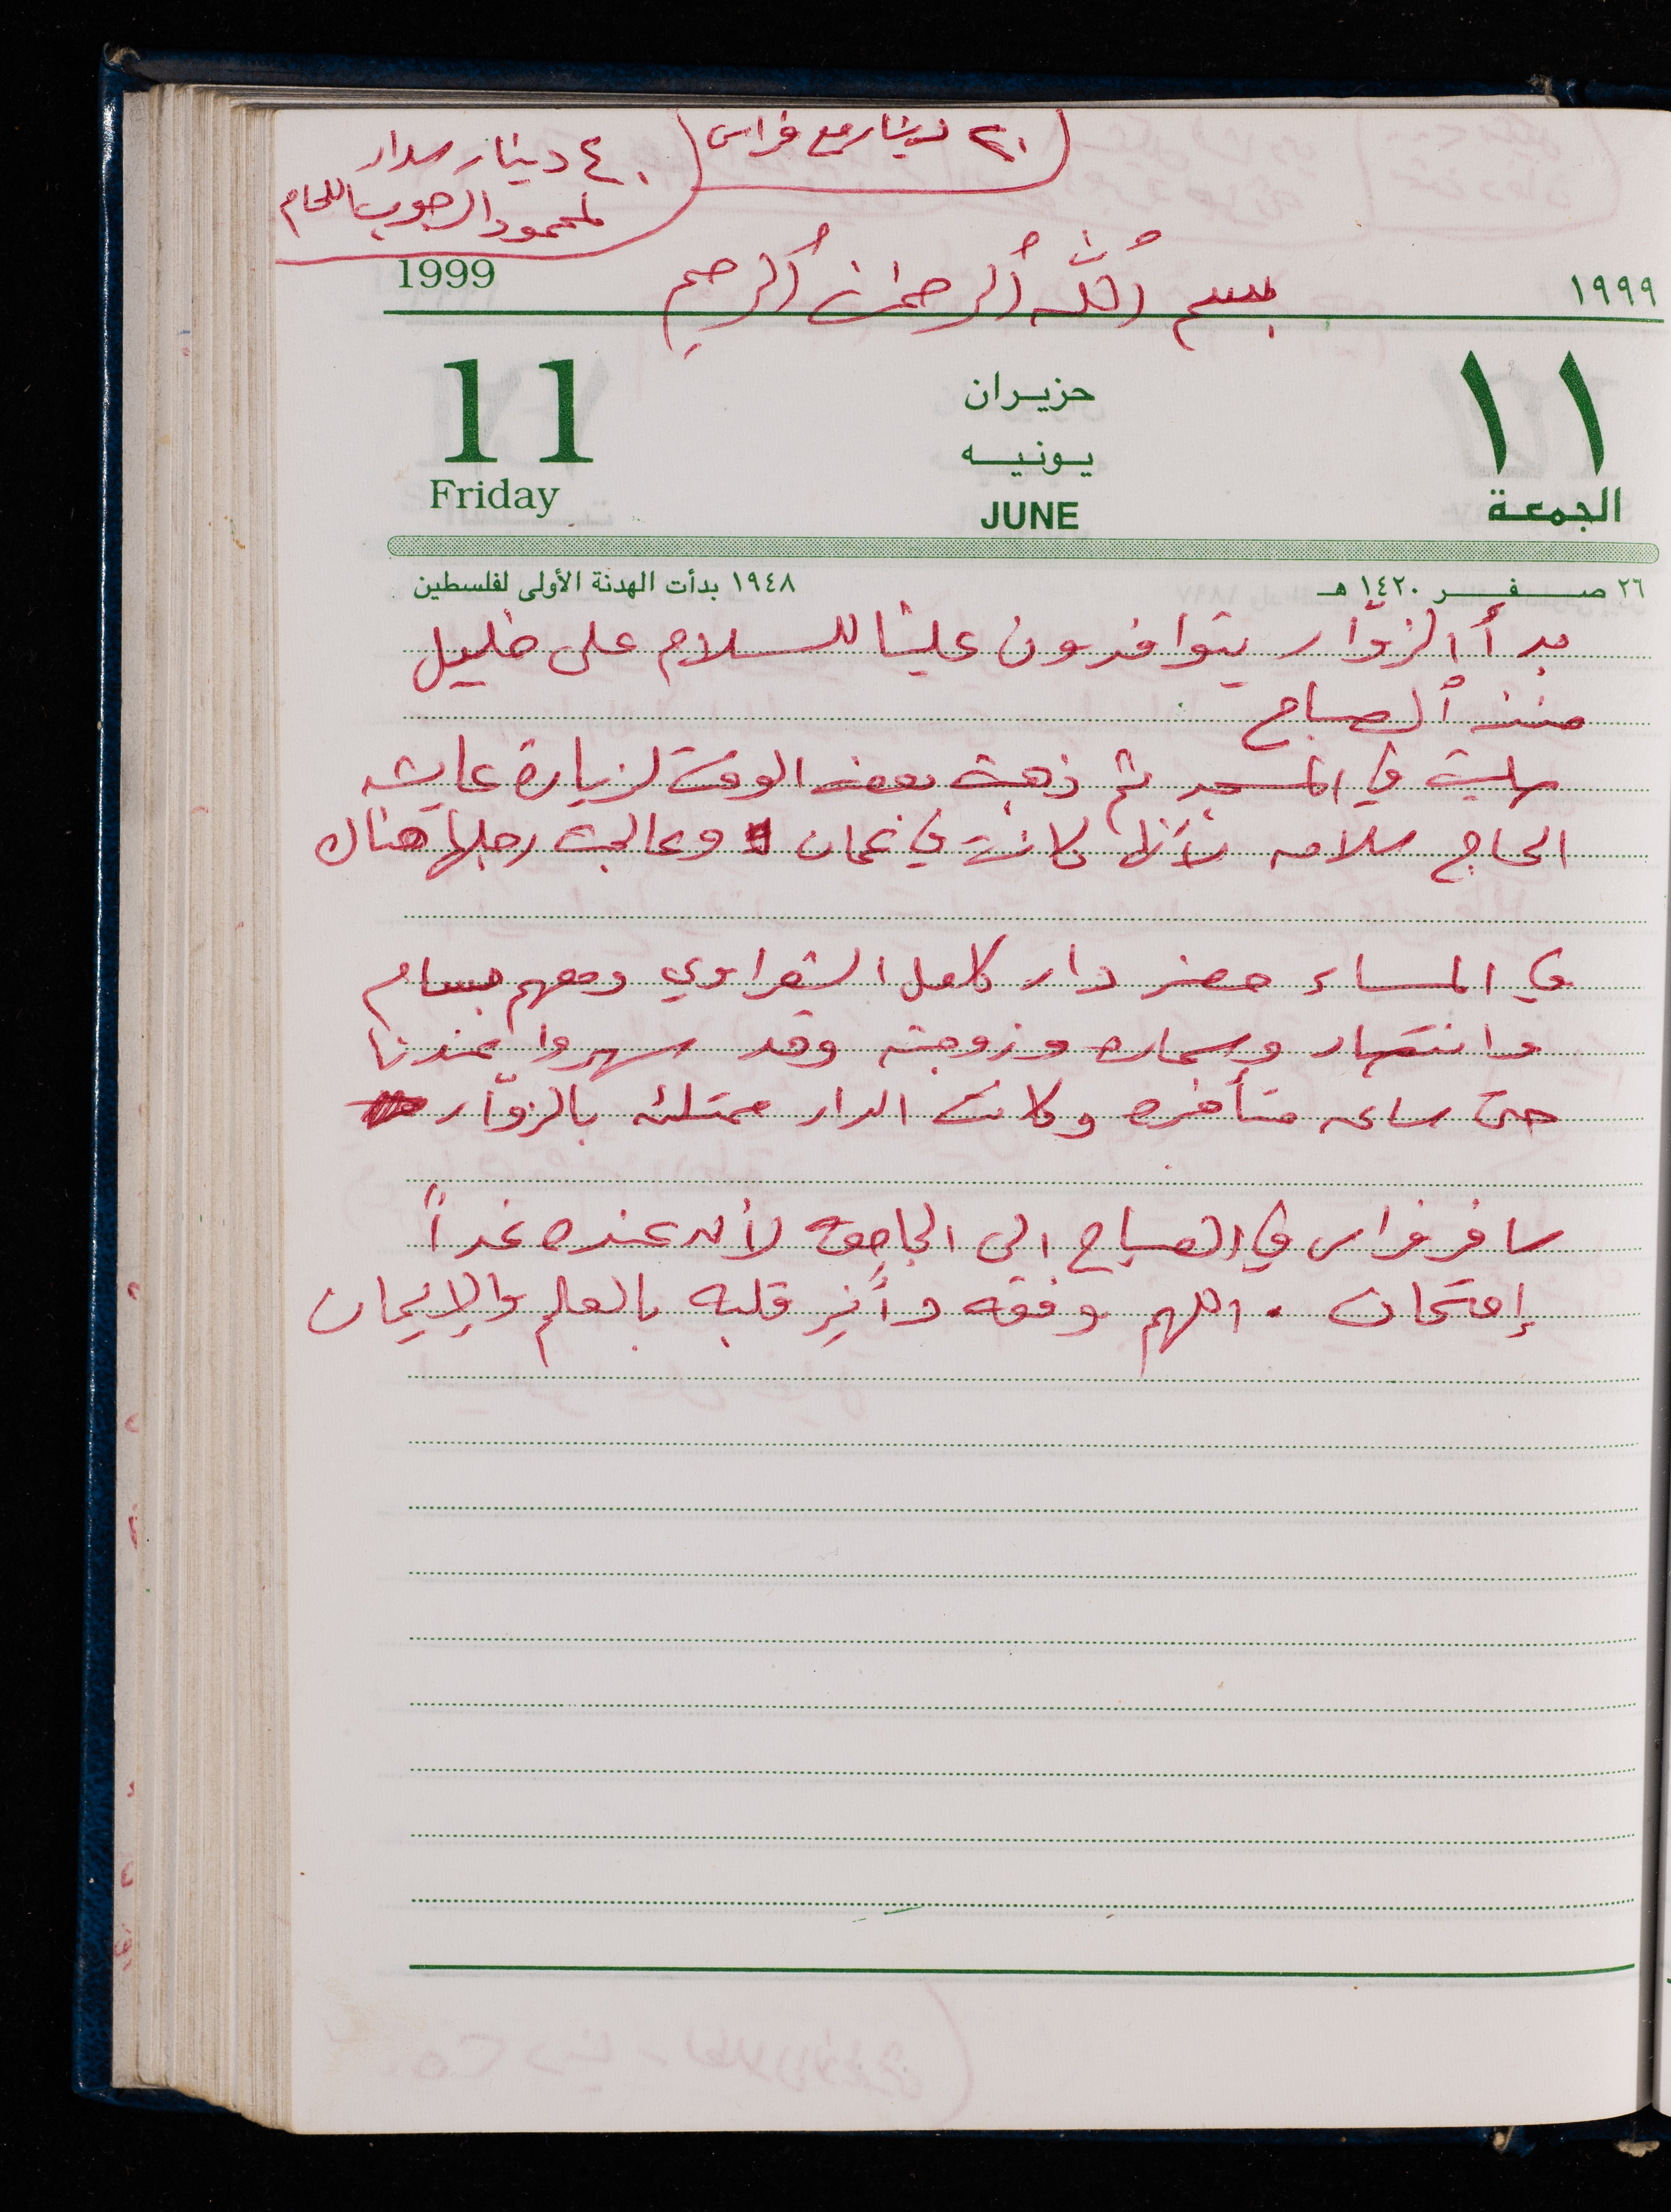 ٢٠ دينار مع فراس
٤٠ دينار سداد
لمحمود الرجوب اللحام
بسم ٱللَّه ٱلرحمٰن ٱلرحيم
1999
١٩٩٩
11
حزيران
١١
يونيه
Friday
JUNE
الجمعة
٢٦ صفر ١٤٢٠ هـ
١٩٤٨ بدأت الهدنة الأولى لفلسطين
بدأ الزوّار يتوافدون علينا للسلام على خليل
منذ ٱلصباح
صليت في المسجد ثم ذهبت بعض الوقت لزيارة عايشه
الحاج سلامه كانت في عمان وعالجت رجلها هناك
في المساء حضر دار كامل الشعراوي ومعهم بسام
وانتصار وسماره وزوجته وقد سهروا عندنا
حتى ساعه متأخره وكانت الدار ممتلئه بالزوّار
سافر فراس في الصباح الى الجامعة لأنه عنده غداً
إمتحان . اللهم وفقه وأَنِر قلبه بالعلم والإيمان